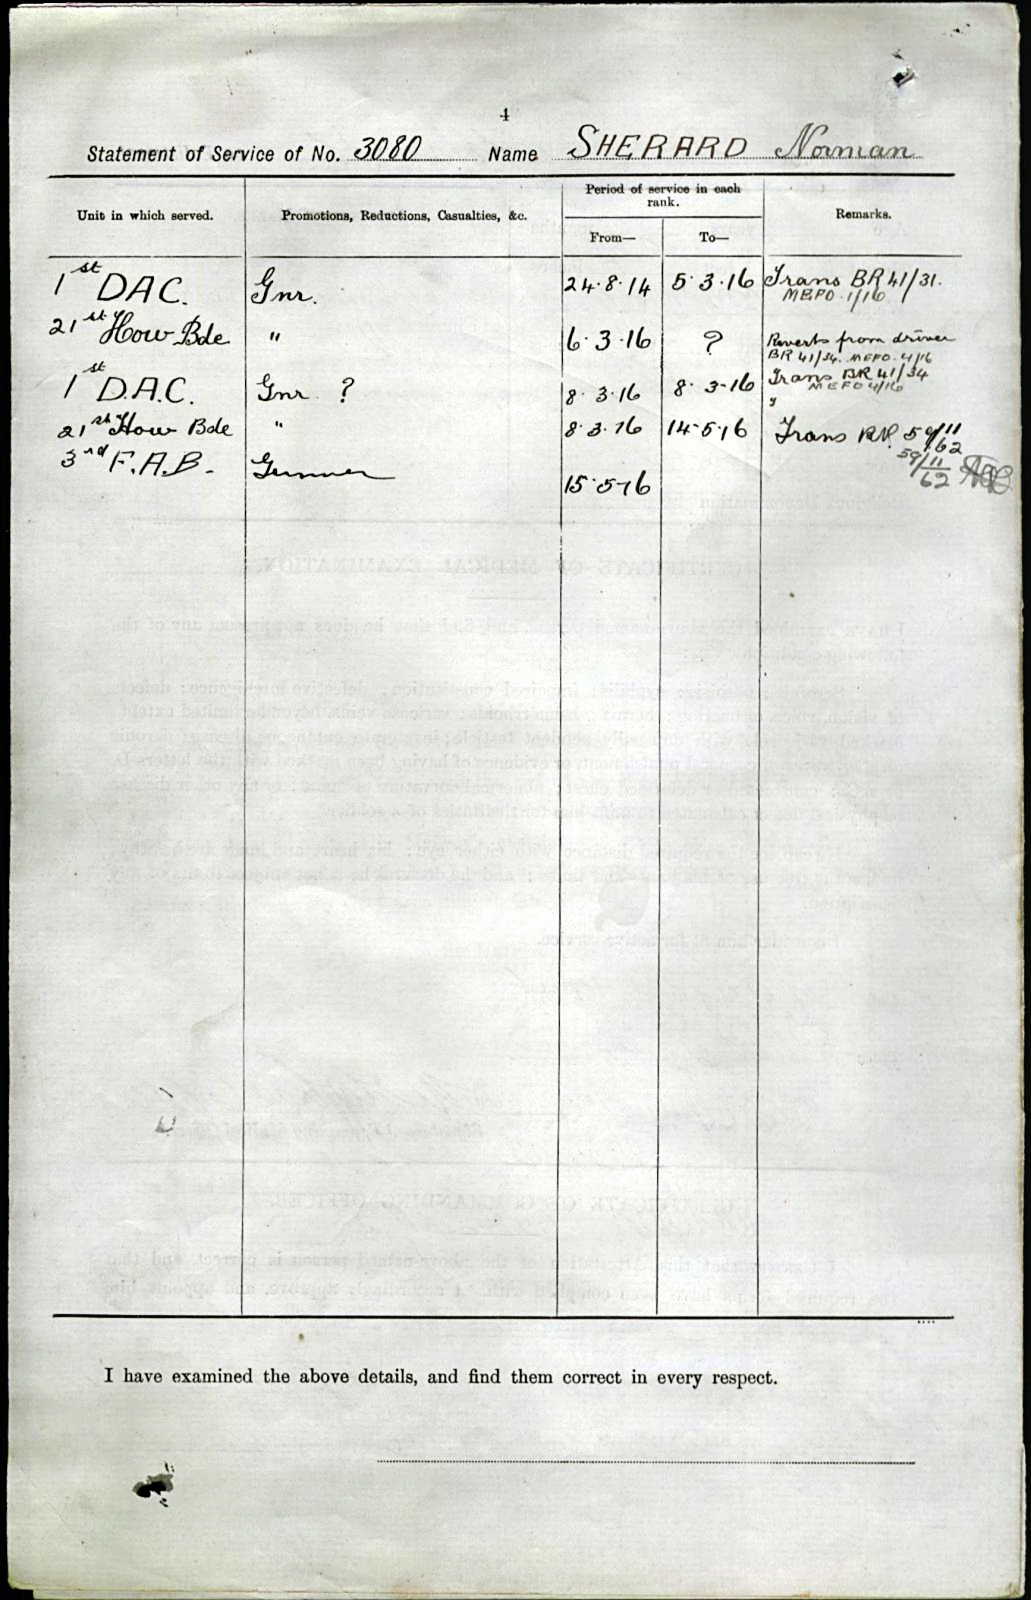 4
Statement of Service of No. 3080 Name SHERARD Norman
Unit in which served.
Promotions, Reductions, Casualties, &c.
Period of service in each
rank.
From—
To—
Remarks.
1st DAC. Gnr. 24.8.14 5.3.16 Trans BR 41/31.
MEFO 1/16
21st How Bde " 6.3.16 ? Reverts from driver
BR 41/34. MEFO 4/16
1st D.A.C. Gnr ? 8.3.16 8.3-16 Trans BR 41/34
MEFO 4/16
21st How Bde " 8.3.16 14-5-16 Trans 59/11
62
3rd F.A.B. Gunner 15.5-16
59/11
62
I have examined the above details, and find them correct in every respect.